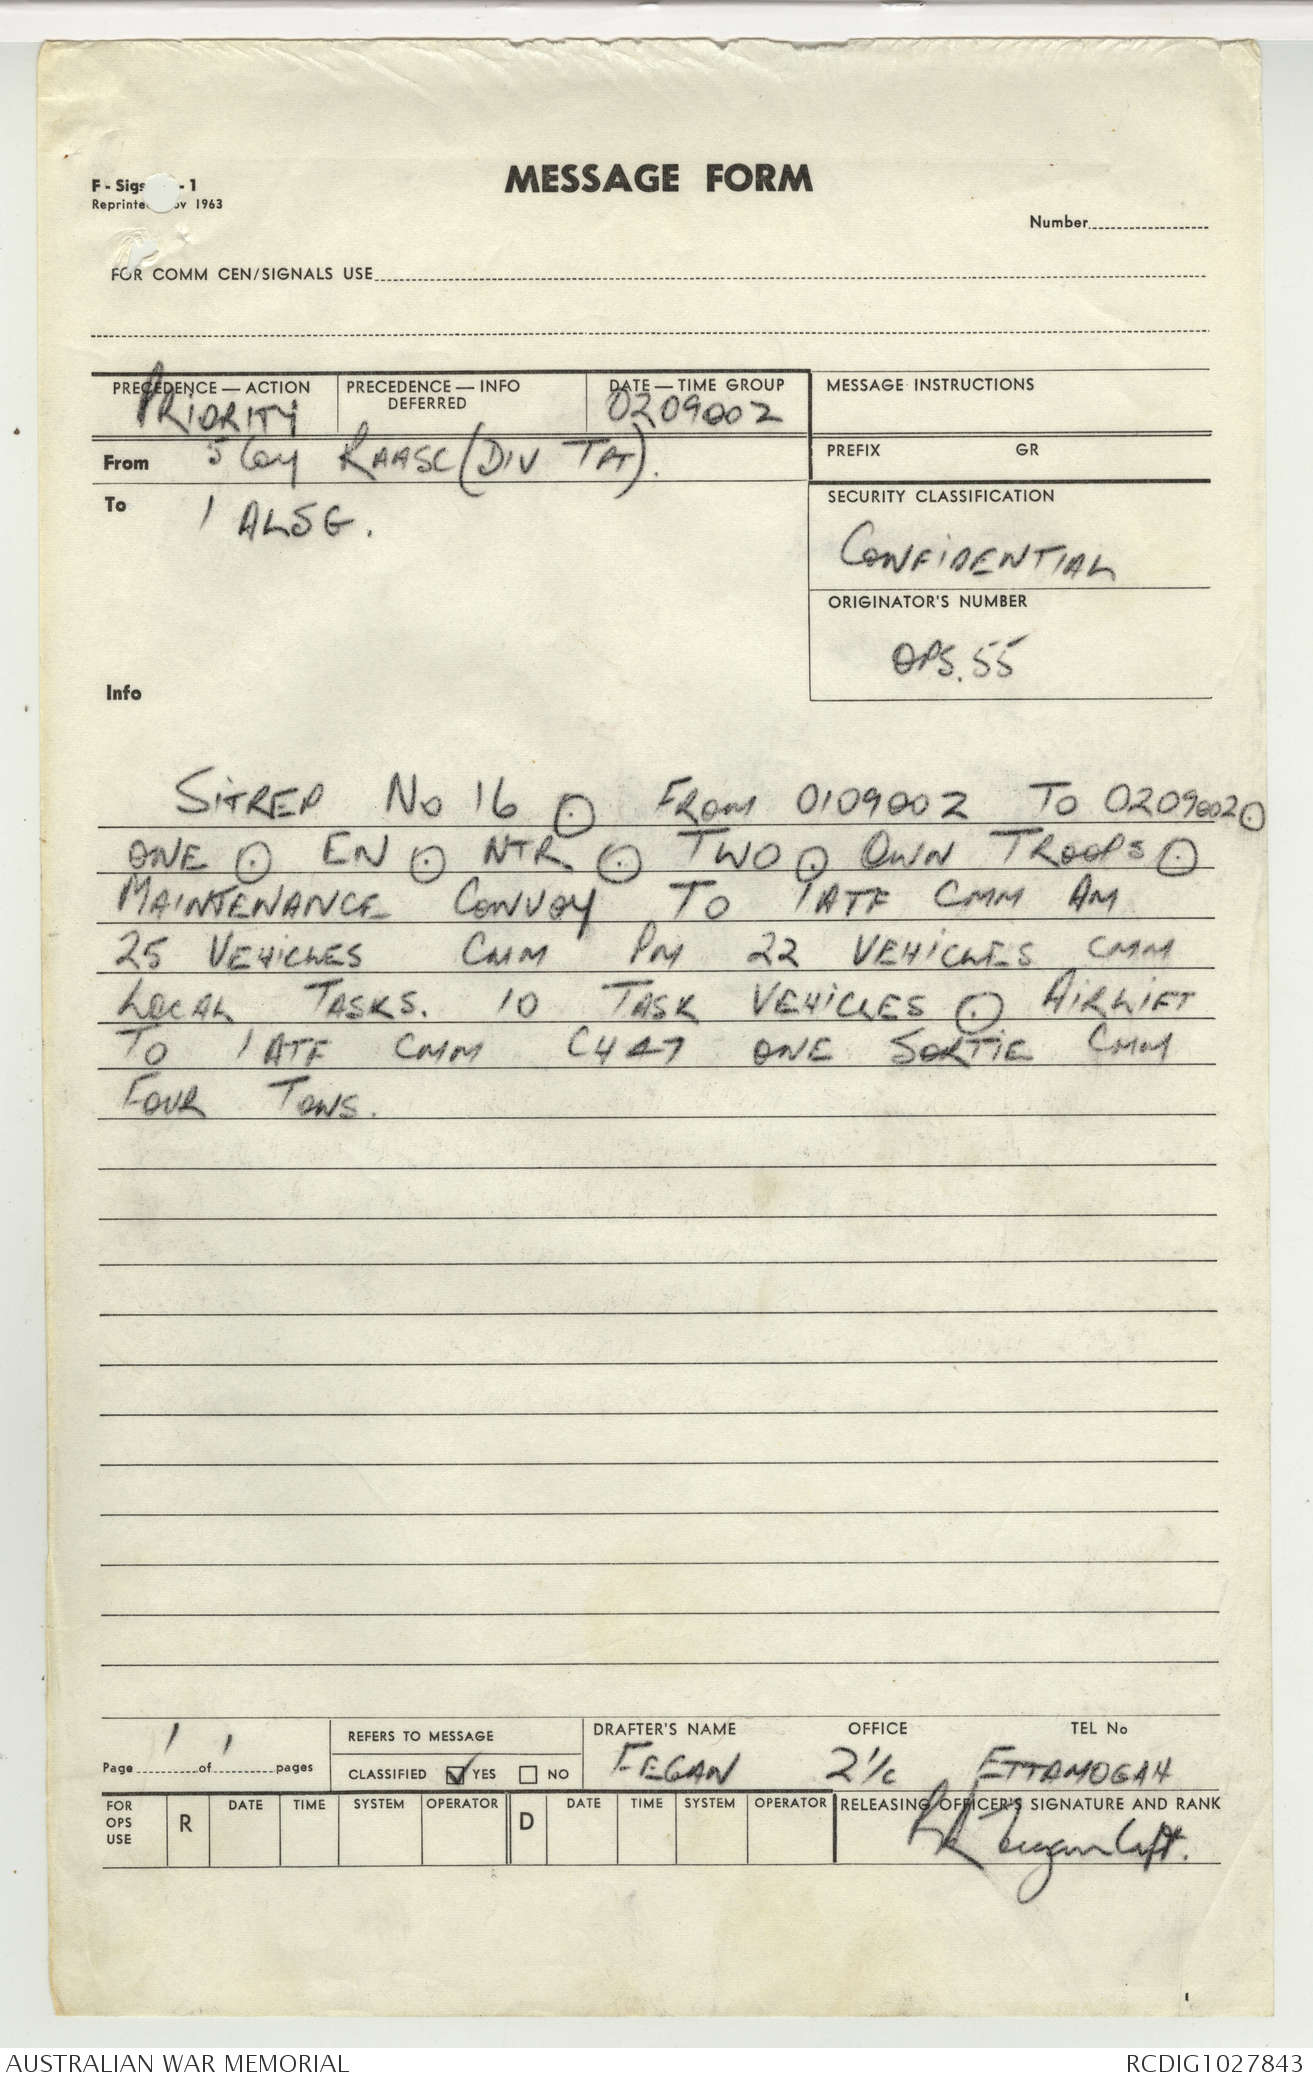 MESSAGE FORM
F - Sigs - 1
Reprinted Nov 1963
Number
FOR COMM CEN/SIGNALS USE
PRECEDENCE — ACTION
PRIORITY
PRECEDENCE — INFO
DEFERRED
DATE — TIME GROUP
020900Z
MESSAGE INSTRUCTIONS
From 5 Coy RAASC (DIV TPT).
PREFIX GR
To 1 ALSG.
SECURITY CLASSIFICATION
CONFIDENTIAL
ORIGINATOR'S NUMBER
OPS. 55
Info
SITREP No 16 ⊙ FROM 010900Z TO 020900Z ⊙
ONE ⊙ EN ⊙ NTR ⊙ TWO ⊙ OWN TROOPS ⊙
MAINTENANCE CONVOY TO 1ATF CMM AM
25 VEHICLES CMM PM 22 VEHICLES CMM
LOCAL TASKS. 10 TASK VEHICLES ⊙ AIRLIFT
TO 1 ATF CMM CH47 ONE SORTIE CMM
FOUR TONS.
Page 1 of 1 pages
REFERS TO MESSAGE
CLASSIFIED YES NO
DRAFTER'S NAME OFFICE TEL No
FEGAN 2i/c ETTAMOGAH
FOR OPS USE
R DATE TIME SYSTEM OPERATOR
D DATE TIME SYSTEM OPERATOR
RELEASING OFFICER'S SIGNATURE AND RANK
Capt.
AUSTRALIAN WAR MEMORIAL
RCDIG1027843